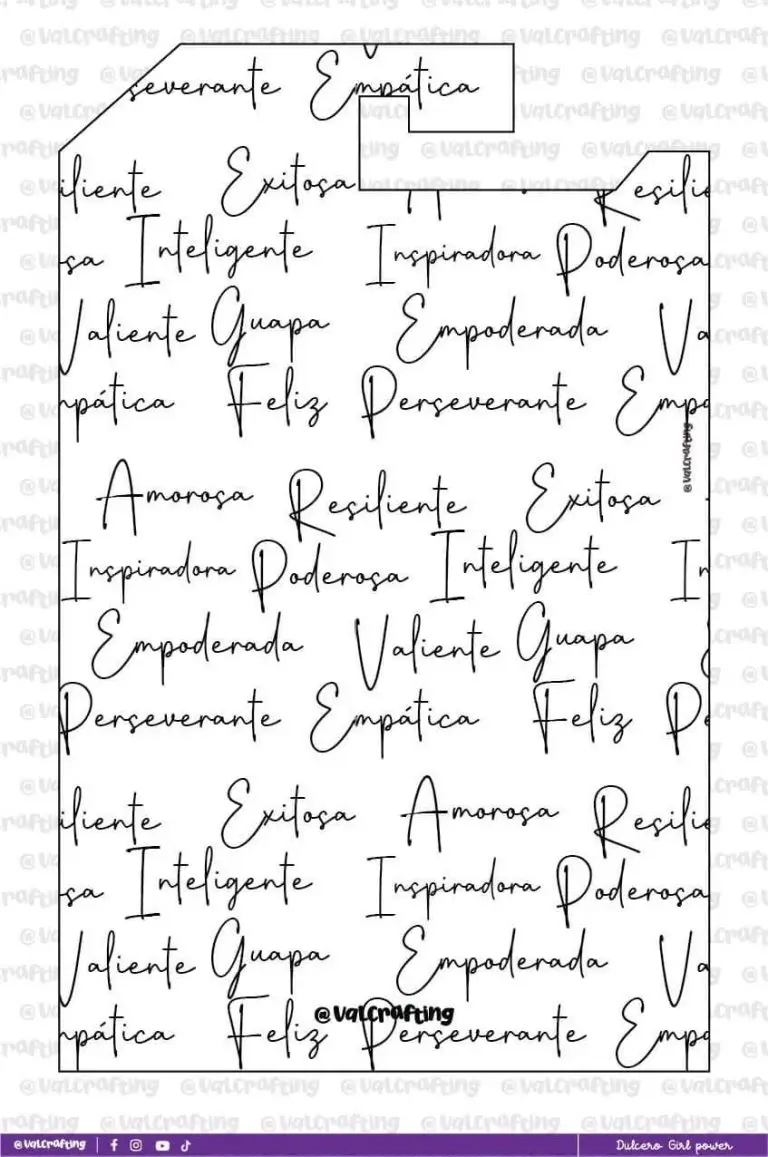 @ValCrafting @ValCrafting @ValCrafting @ValCrafting
severante Empática
iliente Exitosa Resilie
sa Inteligente Inspiradora Poderosa
Valiente Guapa Empoderada Va
mpática Feliz Perseverante Empá
@ValCrafting
Amorosa Resiliente Exitosa
Inspiradora Poderosa Inteligente In
Empoderada Valiente Guapa
Perseverante Empática Feliz Pe
iliente Exitosa Amorosa Resilie
sa Inteligente Inspiradora Poderosa
Valiente Guapa Empoderada Va
@ValCrafting
mpática Feliz Perseverante Empá
@ValCrafting @ValCrafting @ValCrafting @ValCrafting
@ValCrafting Dulcero Girl power